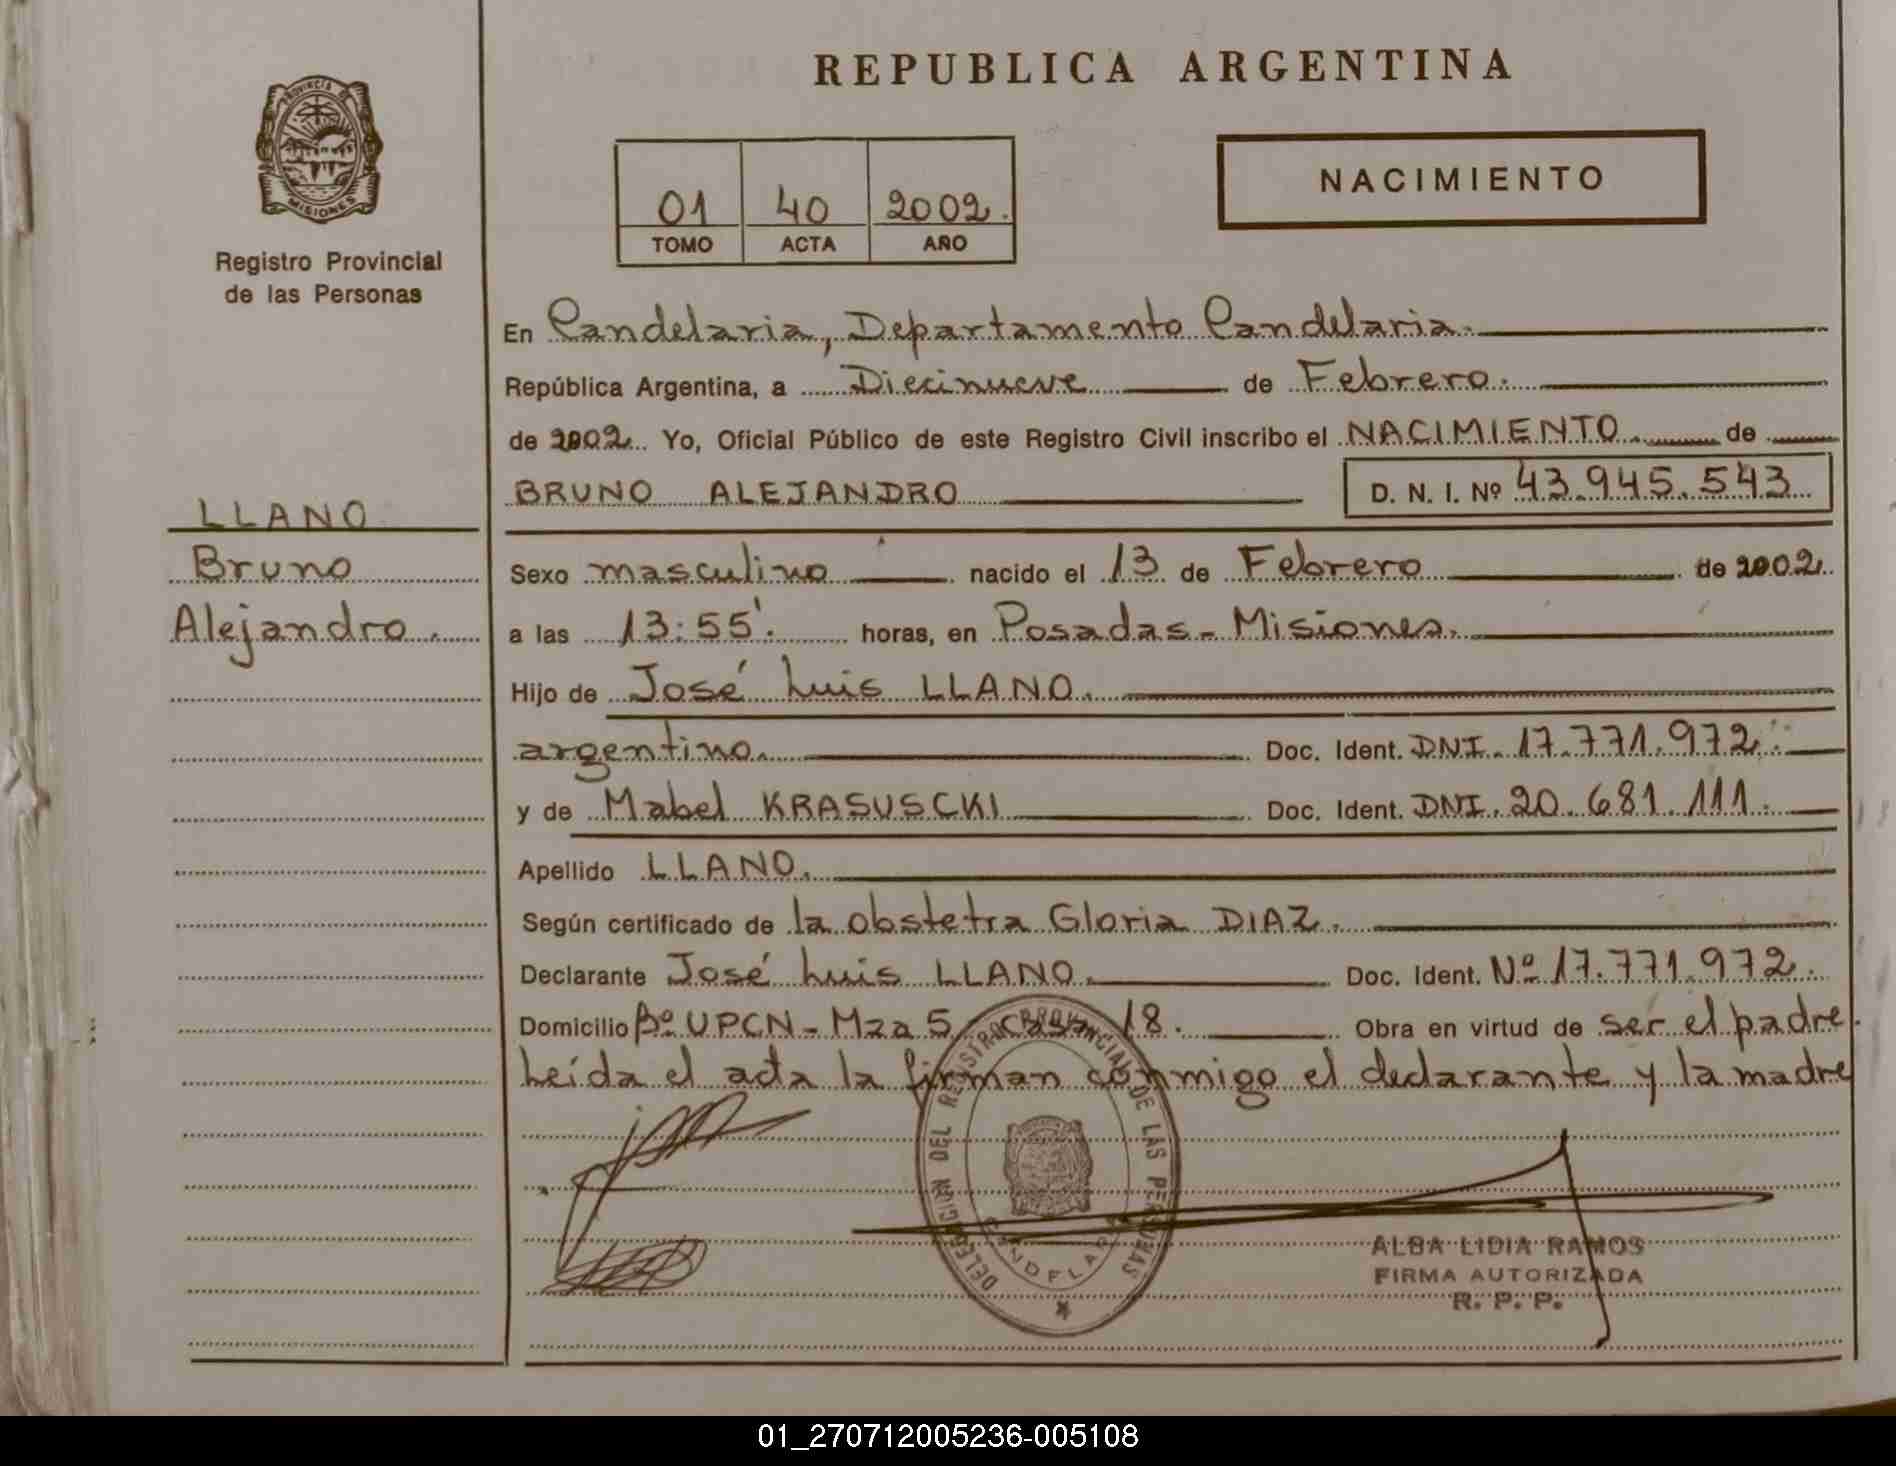 REPUBLICA ARGENTINA
PROVINCIA DE
MISIONES
Registro Provincial
de las Personas
01 40 2002.
TOMO ACTA AÑO
NACIMIENTO
En Candelaria, Departamento Candelaria.
República Argentina, a Diecinueve de Febrero.
de 2002. Yo, Oficial Público de este Registro Civil inscribo el NACIMIENTO. de
BRUNO ALEJANDRO D. N. I. Nº 43.945.543
LLANO
Bruno
Alejandro.
Sexo masculino nacido el 13 de Febrero de 2002.
a las 13:55'. horas, en Posadas - Misiones.
Hijo de José Luis LLANO.
argentino. Doc. Ident. DNI. 17.771.972.
y de Mabel KRASUSCKI Doc. Ident. DNI. 20.681.111.
Apellido LLANO.
Según certificado de la obstetra Gloria DIAZ.
Declarante José Luis LLANO. Doc. Ident. Nº 17.771.972.
Domicilio Bº UPCN - Mza 5 casa 18. Obra en virtud de ser el padre.
Leída el acta la firman conmigo el declarante y la madre
DELEGACION DEL REGISTRO PROVINCIAL DE LAS PERSONAS
CANDELARIA
ALBA LIDIA RAMOS
FIRMA AUTORIZADA
R. P. P.
01_270712005236-005108